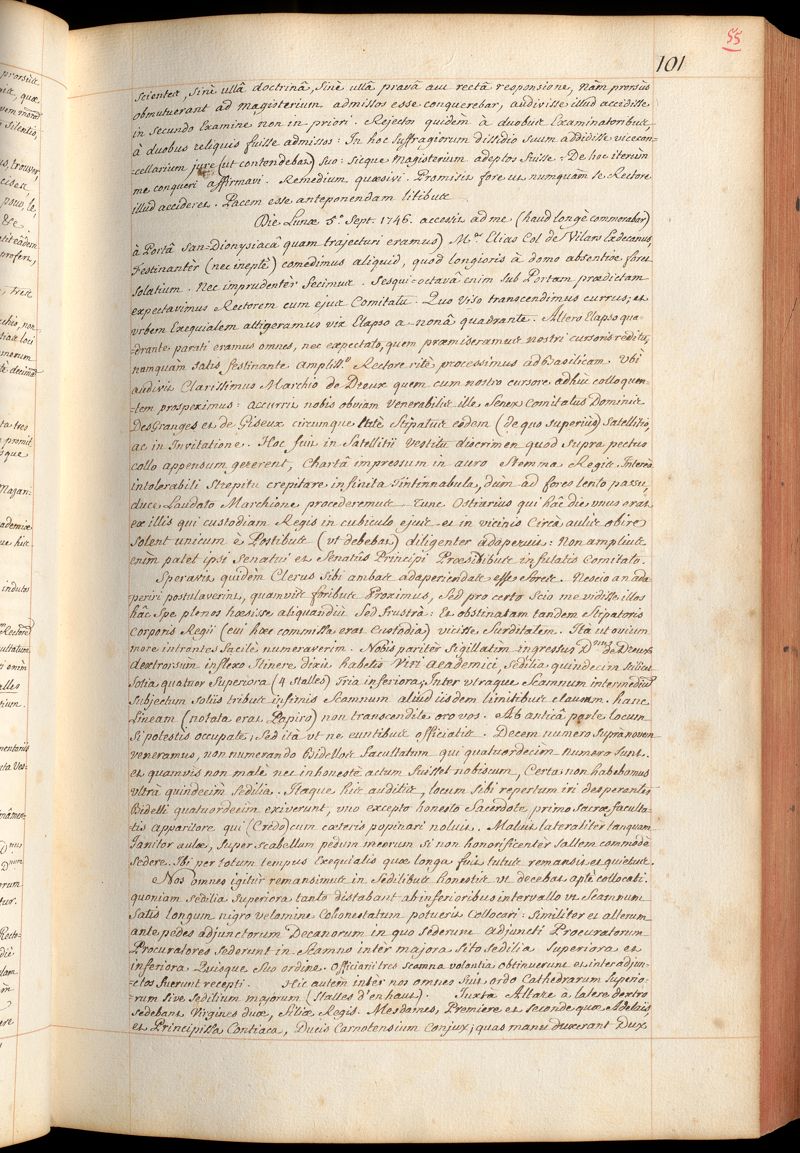 55
101
scientes, sinè ullâ doctrinâ, sinè ullâ pravâ aut rectâ responsione, nàm prorsùs
obmutuerant ad magisterium admissos esse conquerebar, audivisse illud accidisse
in secundo Examine non in priori. Rejectos quidèm à duobus Examinatoribus,
à duobus reliquis fuisse admissos: In hoc suffragiorum dissidio suum addidisse vicecan-
cellarium jure (ut contendebat) suo: sicque magisterium adeptos fuisse. De hoc iterùm
me conqueri affirmavi. Remedium quæsivi. Promisit fore ut numquàm se Rectore
illud accideret. Pacem esse anteponendam litibus
Die Lunæ 5ª Sept. 1746. accessit ad me (haud longè commorabar)
à Portâ San-Dionysiacâ quam trajecturi eramus) M.r Elias Col de Vilars Exdecanus,
Festinantèr (nec ineptè) comedimus aliquid, quod longioris à domo absentiæ foret
solatium. Nec imprudentèr fecimus. Sesqui-octavâ enim sub Portam prædictam
expectavimus Rectorem cum ejus Comitatu. Quo viso transcendimus currus; et
urbem Exequialem attigeramus vix elapso a nonâ quadrante. Altero Elapso qua-
drante parati eramus omnes, nec expectato, quem præmiseramus nostri cursoris reditu,
numquàm satis festinante ampliss.º Rectore ritè processimus ad Basilicam. Ubi
audivit Clarissimus Marchio de Dreux quem cum nostro cursore adhùc colloquen-
-tem prospeximus: accurrit nobis obviam venerabilis ille senex Comitatus Dominis
DesGranges et de Giseux circumque latè stipatus eodem (de quo superiùs) satellitio,
ac in Invitatione. Hoc fuit in satellitii vestitu discrimen quod supra pectus
collo appensum gererent, Chartâ impressum in auro Stemma Regis Intereà
intolerabili strepitu crepitare infinita tintinnabula, dum ad fores lento passu,
duce Laudato Marchione procederemus tunc Ostiarius qui hâc die unus erat
ex illis qui custodiam Regis in cubiculo ejus et in vicinis Circà aulis obire
solent unicum è Postibus (ut debebat) diligenter adaperuit: Non ampliùs
enim patet ipsi Senatui et Senatûs Principi Præsidibus infulatis Comitato.
Speravit quidem Clerus sibi ambas adaperiendas esse fores. Nescio an ada-
periri postulaverint, quamvis foribus Proximus, sed pro certo scio me vidisse illos
hâc spe plenos hæsisse aliquandiù sed frustrà: Et obstinatam tandem stipatoris
corporis Regii (cui hæc commissa erat custodia) vicisse surditatem. Ità ut ovium
more intrantes facilè numeraverim. Nobis paritèr sigillatim ingressus D.nus de Dreux
dextrorsum inflexo itinere dixit habetis Viri academici, sedilia quindecim scilicet
solia quatuor superiora (4 stalles) tria inferiora; Inter utraque scamnum intermedium
subjectum soliis tribus infimis scamnum aliud iisdem limitibus clausum. hanc
Lineam (notata erat Papiro) non transcendite oro vos. Ab anticâ parte locum
si potestis occupate; sed ità ut ne euntibus officiatis. Decem numero supra novem
veneramus, non numerando Bidellos facultatum qui quatuordecim numero sunt.
et quamvis non male nec inhonestè actum fuisset nobiscum, Certa: non habebamus
ultrà quindecim sedilia. Itaque his auditis, locum sibi repertum iri desperantes
Bidelli quatuordecim exiverunt, uno excepto honesto Sacerdote primo sacræ faculta-
tis apparitore qui (Credo) cum cæteris popinari noluit. Maluit lateralitèr tanquam
Janitor aulæ, super scabellum pedum meorum si non honorificenter saltem commodè
sedere. Ibi per totum tempus Exequialis quæ longa fuit tutus remansit et quietus.
Nos omnes igitur remansimus in sedilibus honestis ut decebat aptè collocati.
quoniam sedilia superiora tanto distabant ab inferioribus intervallo ut scamnum
satis longum nigro velamine cohonestatum potuerit collocari: similiter et alterum
ante pedes adjunctorum Decanorum in quo sederunt adjuncti Procuratorum
Procuratores sederunt in scamno inter majora sito sedilia superiora et
inferiora Quisque suo ordine. Officiarii tres scamna volantia obtinuerunt et inter adjun-
-ctos fuerunt recepti. Hic autem inter nos omnes fuit ordo Cathedrarum superio-
rum sive sedilium majorum (Stalles d'en haut). Juxtà Altare à latere dextro
sedebant Virgines duæ, filiæ Regis. Mesdames, Premiere et seconde quæ Adelais,
et Principissa Contiaca, Ducis Carnotensium Conjux; quas manu duxerant Dux